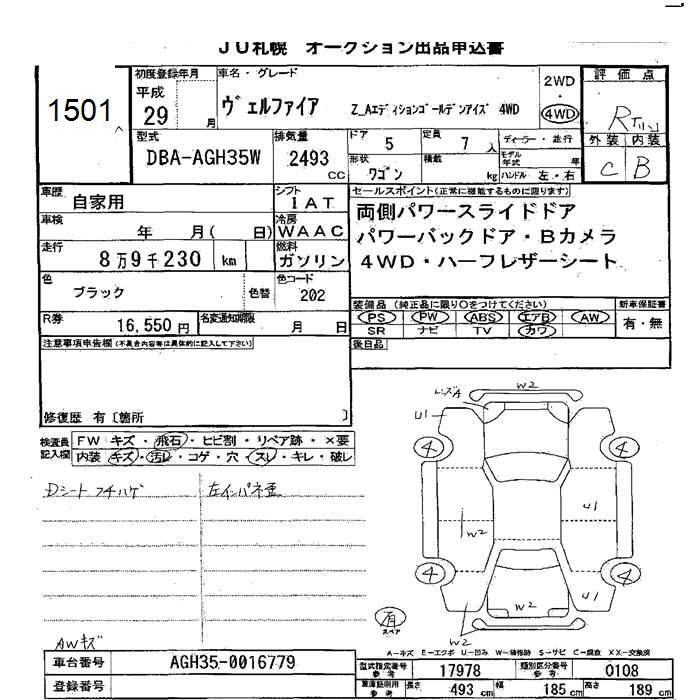 JU札幌 オークション出品申込書
1501
初度登録年月 平成 29 月
車名・グレード ヴェルファイア Z_Aエディションゴールデンアイズ 4WD
2WD ・ 4WD
評価点 R
外装 内装
C B
型式 DBA-AGH35W
排気量 2493 CC
ドア 5
定員 7 人
ディーラー・並行
形状 ワゴン
積載 kg
モデル年式 年
ハンドル 左・右
車歴 自家用
シフト IAT
セールスポイント(正常に機能するものに限ります)
両側パワースライドドア
パワーバックドア・Bカメラ
4WD・ハーフレザーシート
車検 年 月( 日)
冷房 WAAC
走行 8万9千230 km
燃料 ガソリン
色 ブラック 色替
色コード 202
装備品 (純正品に限り○をつけてください)
新車保証書
PS PW ABS エアB AW
有・無
SR ナビ TV カワ
R券 16,550円
名変通知期限 月 日
後日品
注意事項申告欄(不具合内容等は具体的に記入して下さい)
修復歴 有〔箇所 〕
検査員記入欄
FW キズ・飛石・ヒビ割・リペア跡・×要
内装 キズ・汚レ・コゲ・穴・スレ・キレ・破レ
Dシート フチハゲ
左インパネ歪
AWキズ
レンズA
W2
U1
4
4
U1
W2
4
4
W2
U1
W2
有
スペア
A-キズ E-エクボ U-凹み W-補修跡 S-サビ C-腐食 XX-交換済
車台番号 AGH35-0016779
型式指定番号 参考 17978
類別区分番号 参考 0108
登録番号
車庫証明用 参考 長さ 493 cm 幅 185 cm 高さ 189 cm